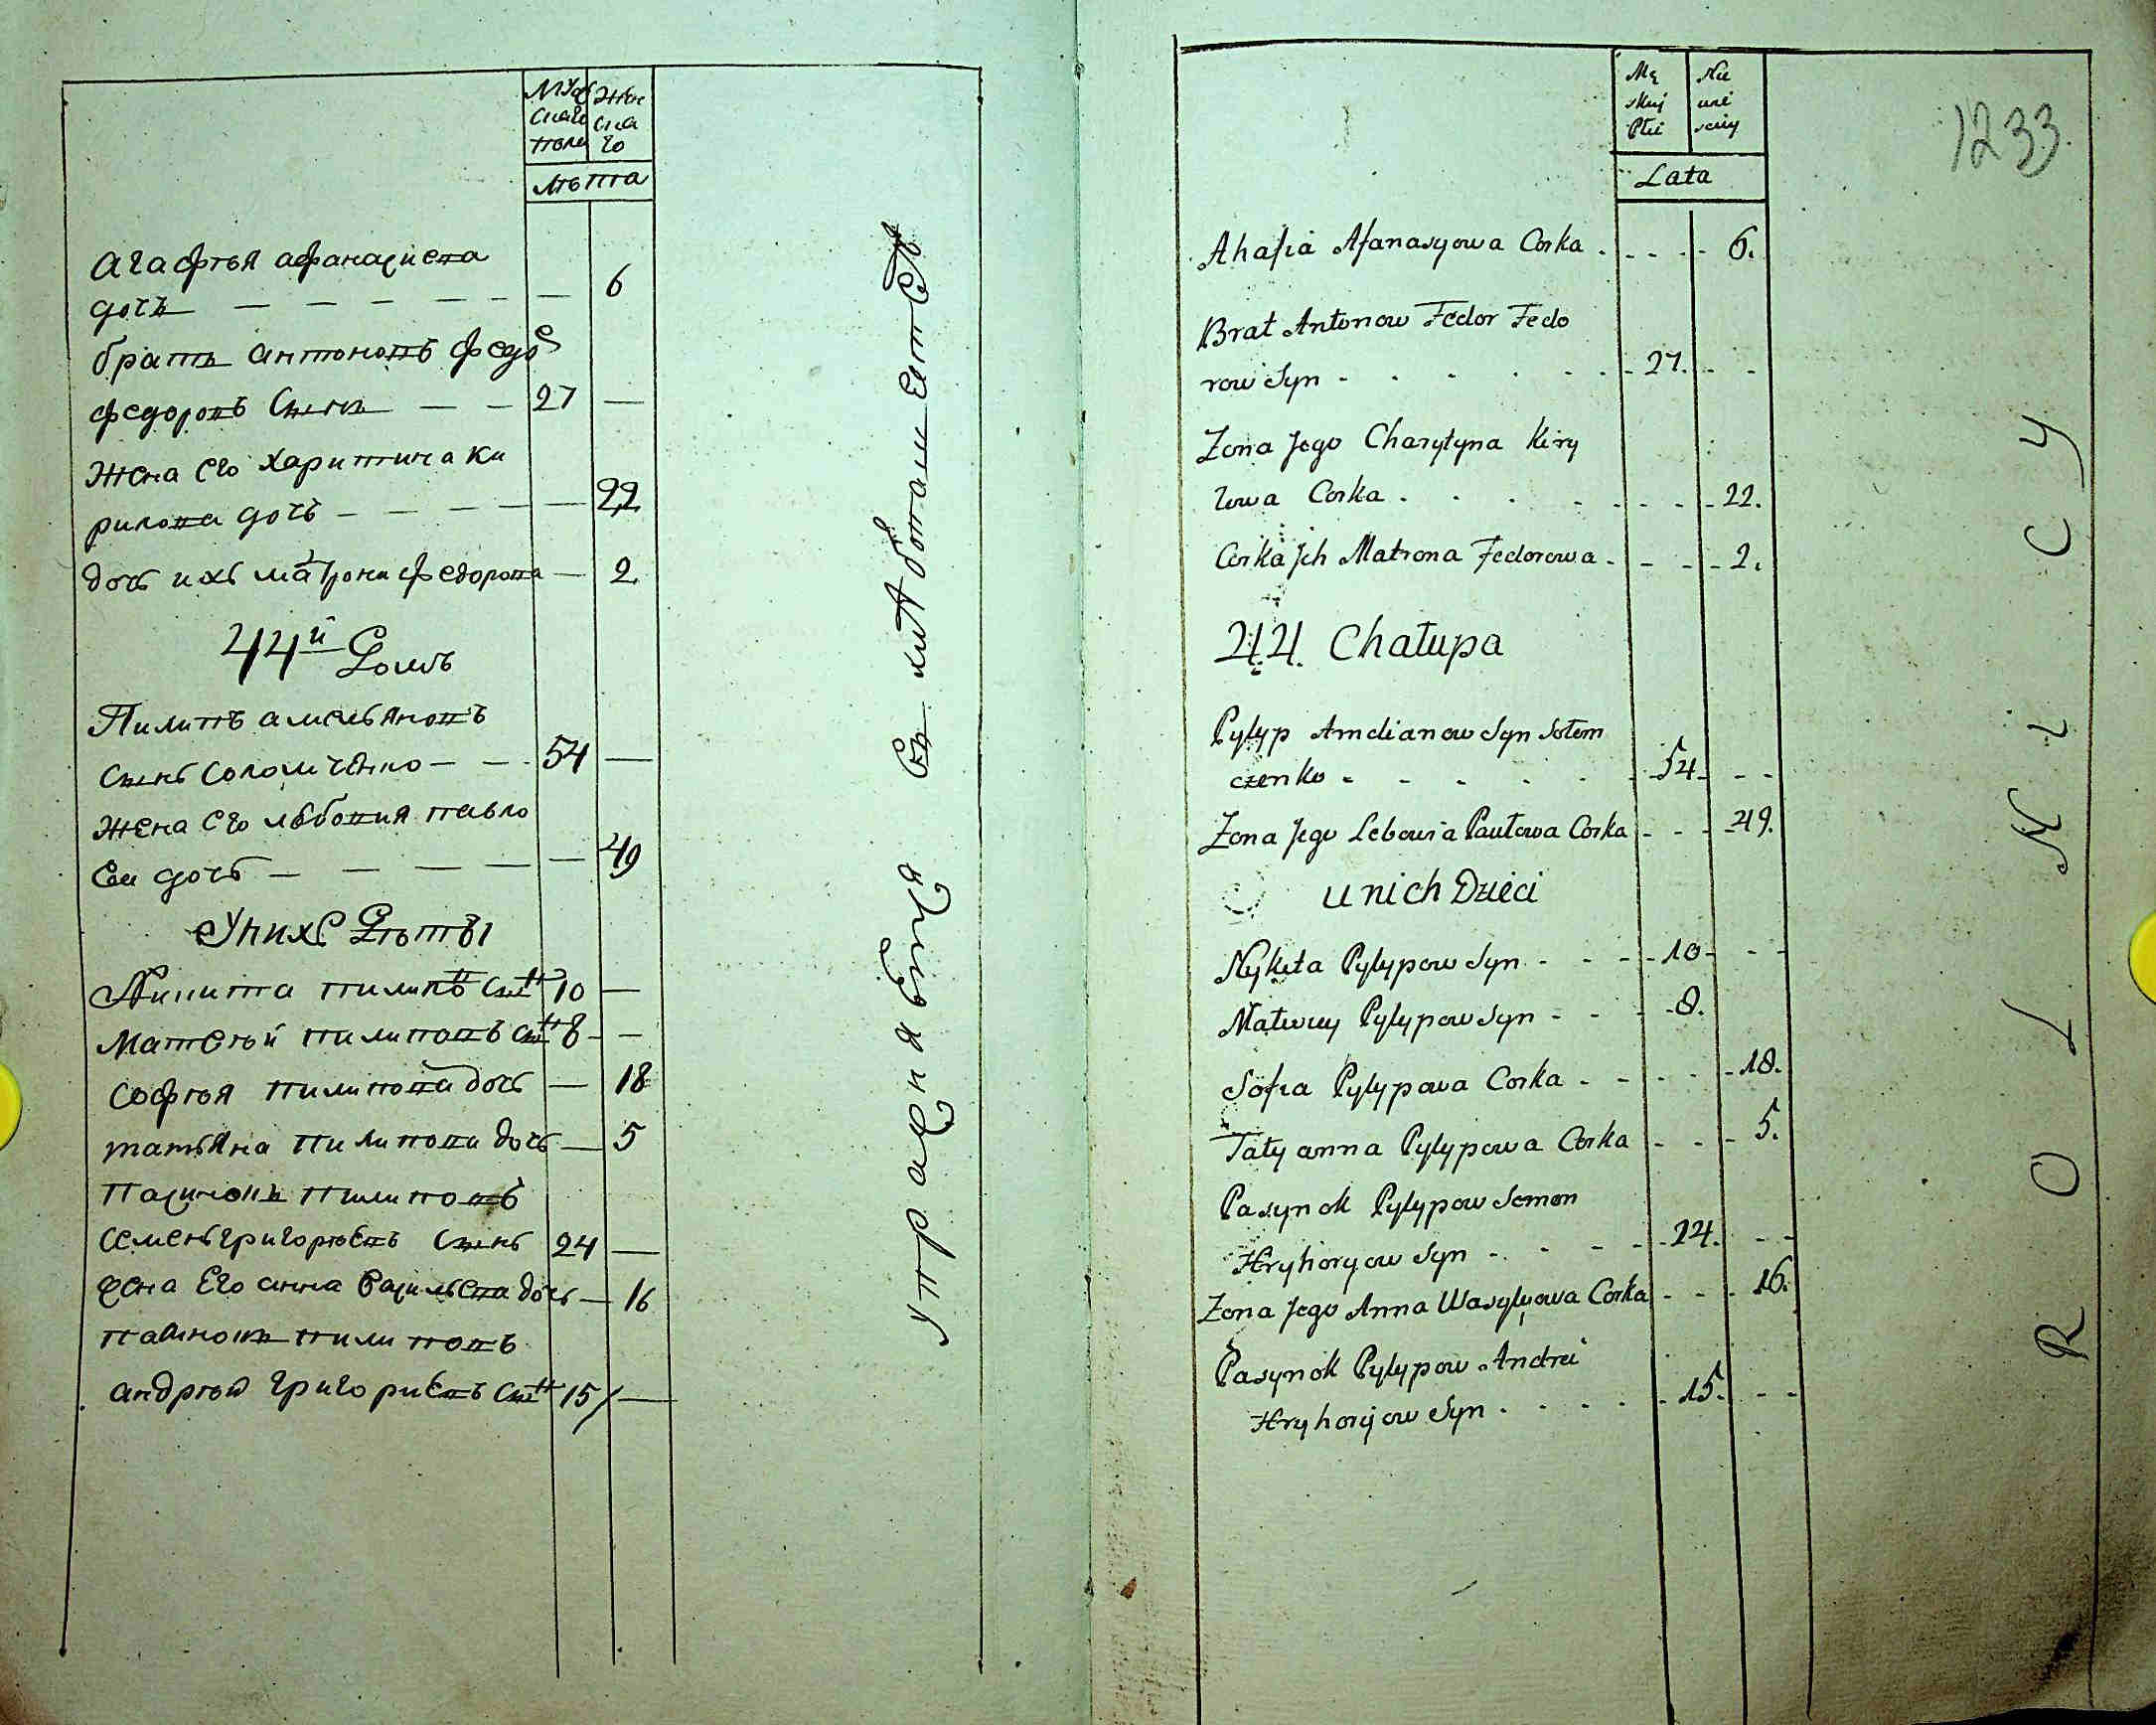 Мужскаго пола
Женскаго
Лѣта
Агафья афанасиева
дочь 6
братъ антоновъ федоръ
федоровъ сынъ 27
Жена его харитина ки
рилова дочь 22
дочь ихъ матрона федорова 2
44й Домъ
Пилипъ амельяновъ
сынъ соломченко 54
Жена его львовия павло
ва дочь 49
У нихъ Дѣти
Никита пилиповъ сынъ 10
Матвѣй пилиповъ сынъ 8
софья пилипова дочь 18
татьяна пилипова дочь 5
пасынокъ пилиповъ
семенъ григорьевъ сынъ 24
жена его анна васильева дочь 16
пасынокъ пилиповъ
андрѣй григориевъ сынъ 15
упражняется въ хлѣбопашествѣ
Mę
skiej
Płci
Nie
wie
sciey
Lata
1233
Ahafia Afanasyowa Corka 6.
Brat Antonow Fedor Fedo
row Syn 27.
Zona Jego Charytyna Kiry
lowa Corka 22.
Corka Jch Matrona Fedorowa 2.
44. Chałupa
Pylyp Amelianow Syn Sołom
czenko 54
Zona Jego Lebowia Pawłowa Corka 49.
u nich Dzieci
Nykita Pylypow Syn 10
Matwiy Pylypow Syn 8.
Sofia Pylypowa Corka 18.
Tatyanna Pylypowa Corka 5.
Pasynok Pylypow Semen
Hryhoryow Syn 24.
Zona Jego Anna Wasylyowa Corka 16.
Pasynok Pylypow Andrei
Hryhoryow Syn 15.
ROLNICY